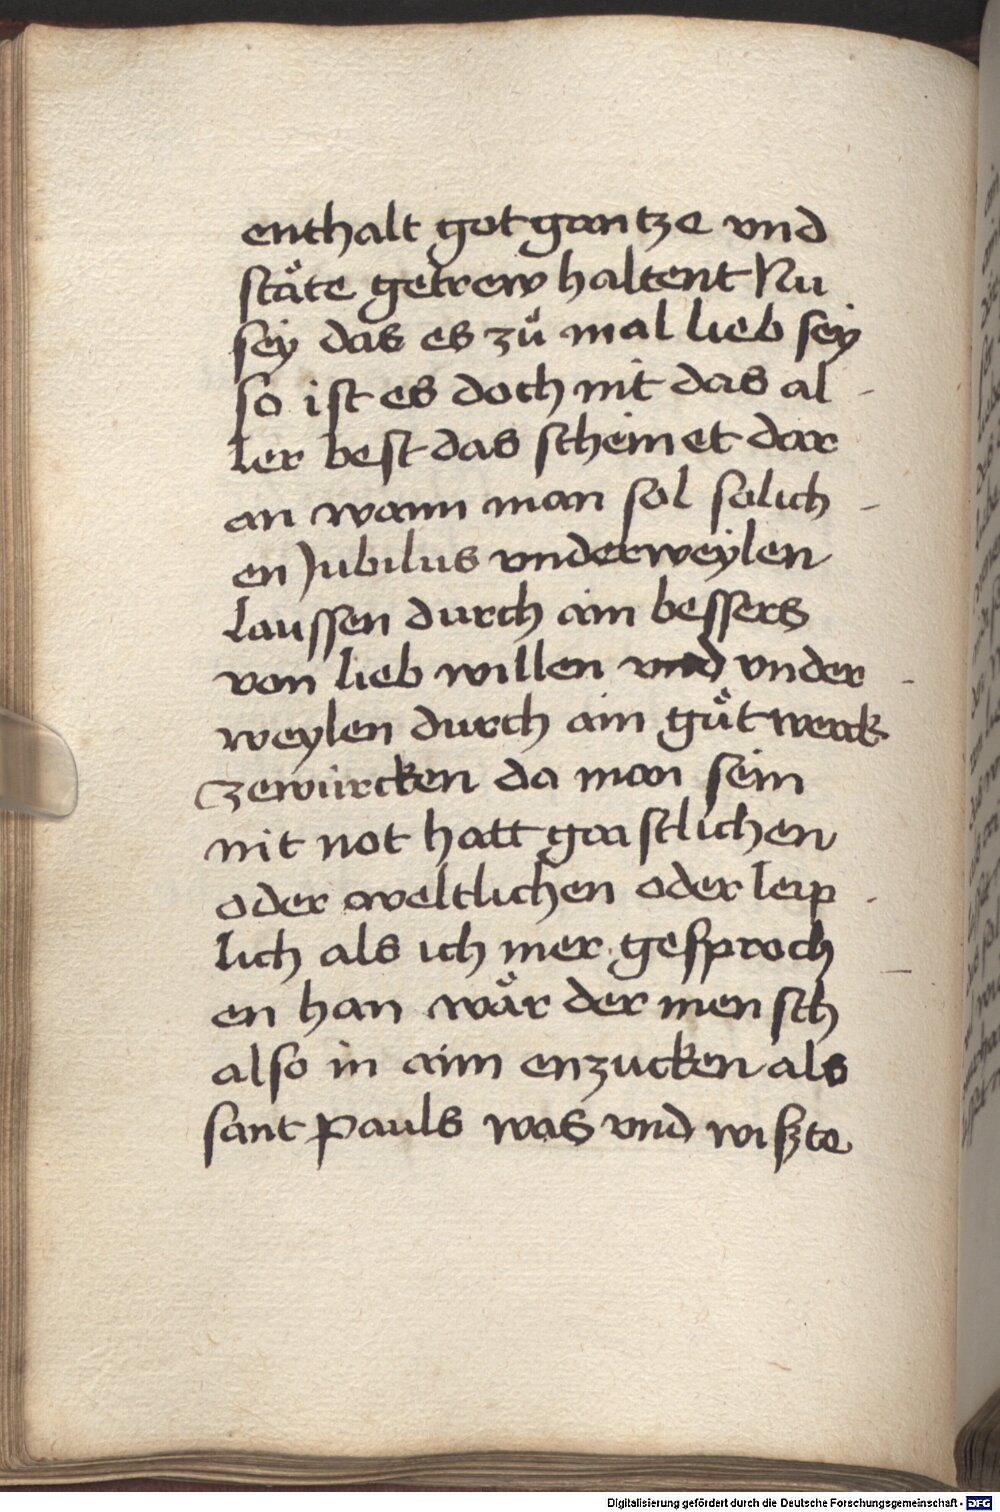 enthalt got gantze vnd
stäte getrew haltent Nu
sey das es zů mal lieb sey
so ist es doch nit das al
ler best das scheinet dar
an wann man sol solich
en Jubilus vnderweylen
laussen durch ain bessers
von lieb willen vnd vnder
weylen durch ain gůt werck
zewürcken da man sein
nit not hatt gaistlichen
oder weltlichen oder leip
lich als ich mer gesproch
en han wär der mensch
also in aim enzucken als
sant pauls was vnd wiszte
Digitalisierung gefördert durch die Deutsche Forschungsgemeinschaft - DFG